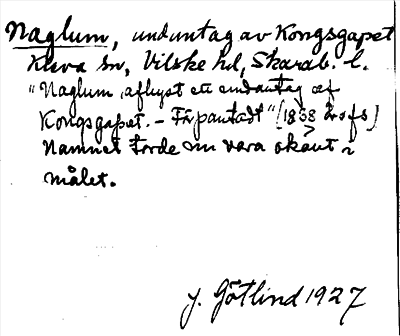 Naglum, undantag av Kongsgapet
Kleva sn, Vilske hd, Skarab. l.
"Naglum, aflyst ett undantag af
Kongsgapet. – Få pantadt" (1858 års fs)
Namnet torde nu vara okänt i
målet.
J. Götlind 1927